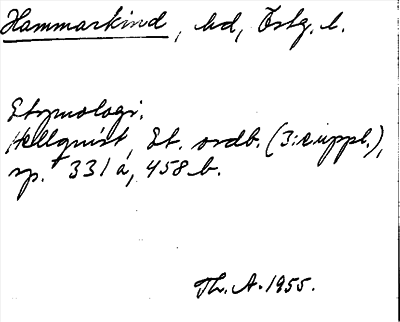 Hammarkind, hd, Östg. l.
Etymologi.
Hellquist, Et. ordb. (3:e uppl.),
sp. 331 a, 458 b.
Th. A. 1955.